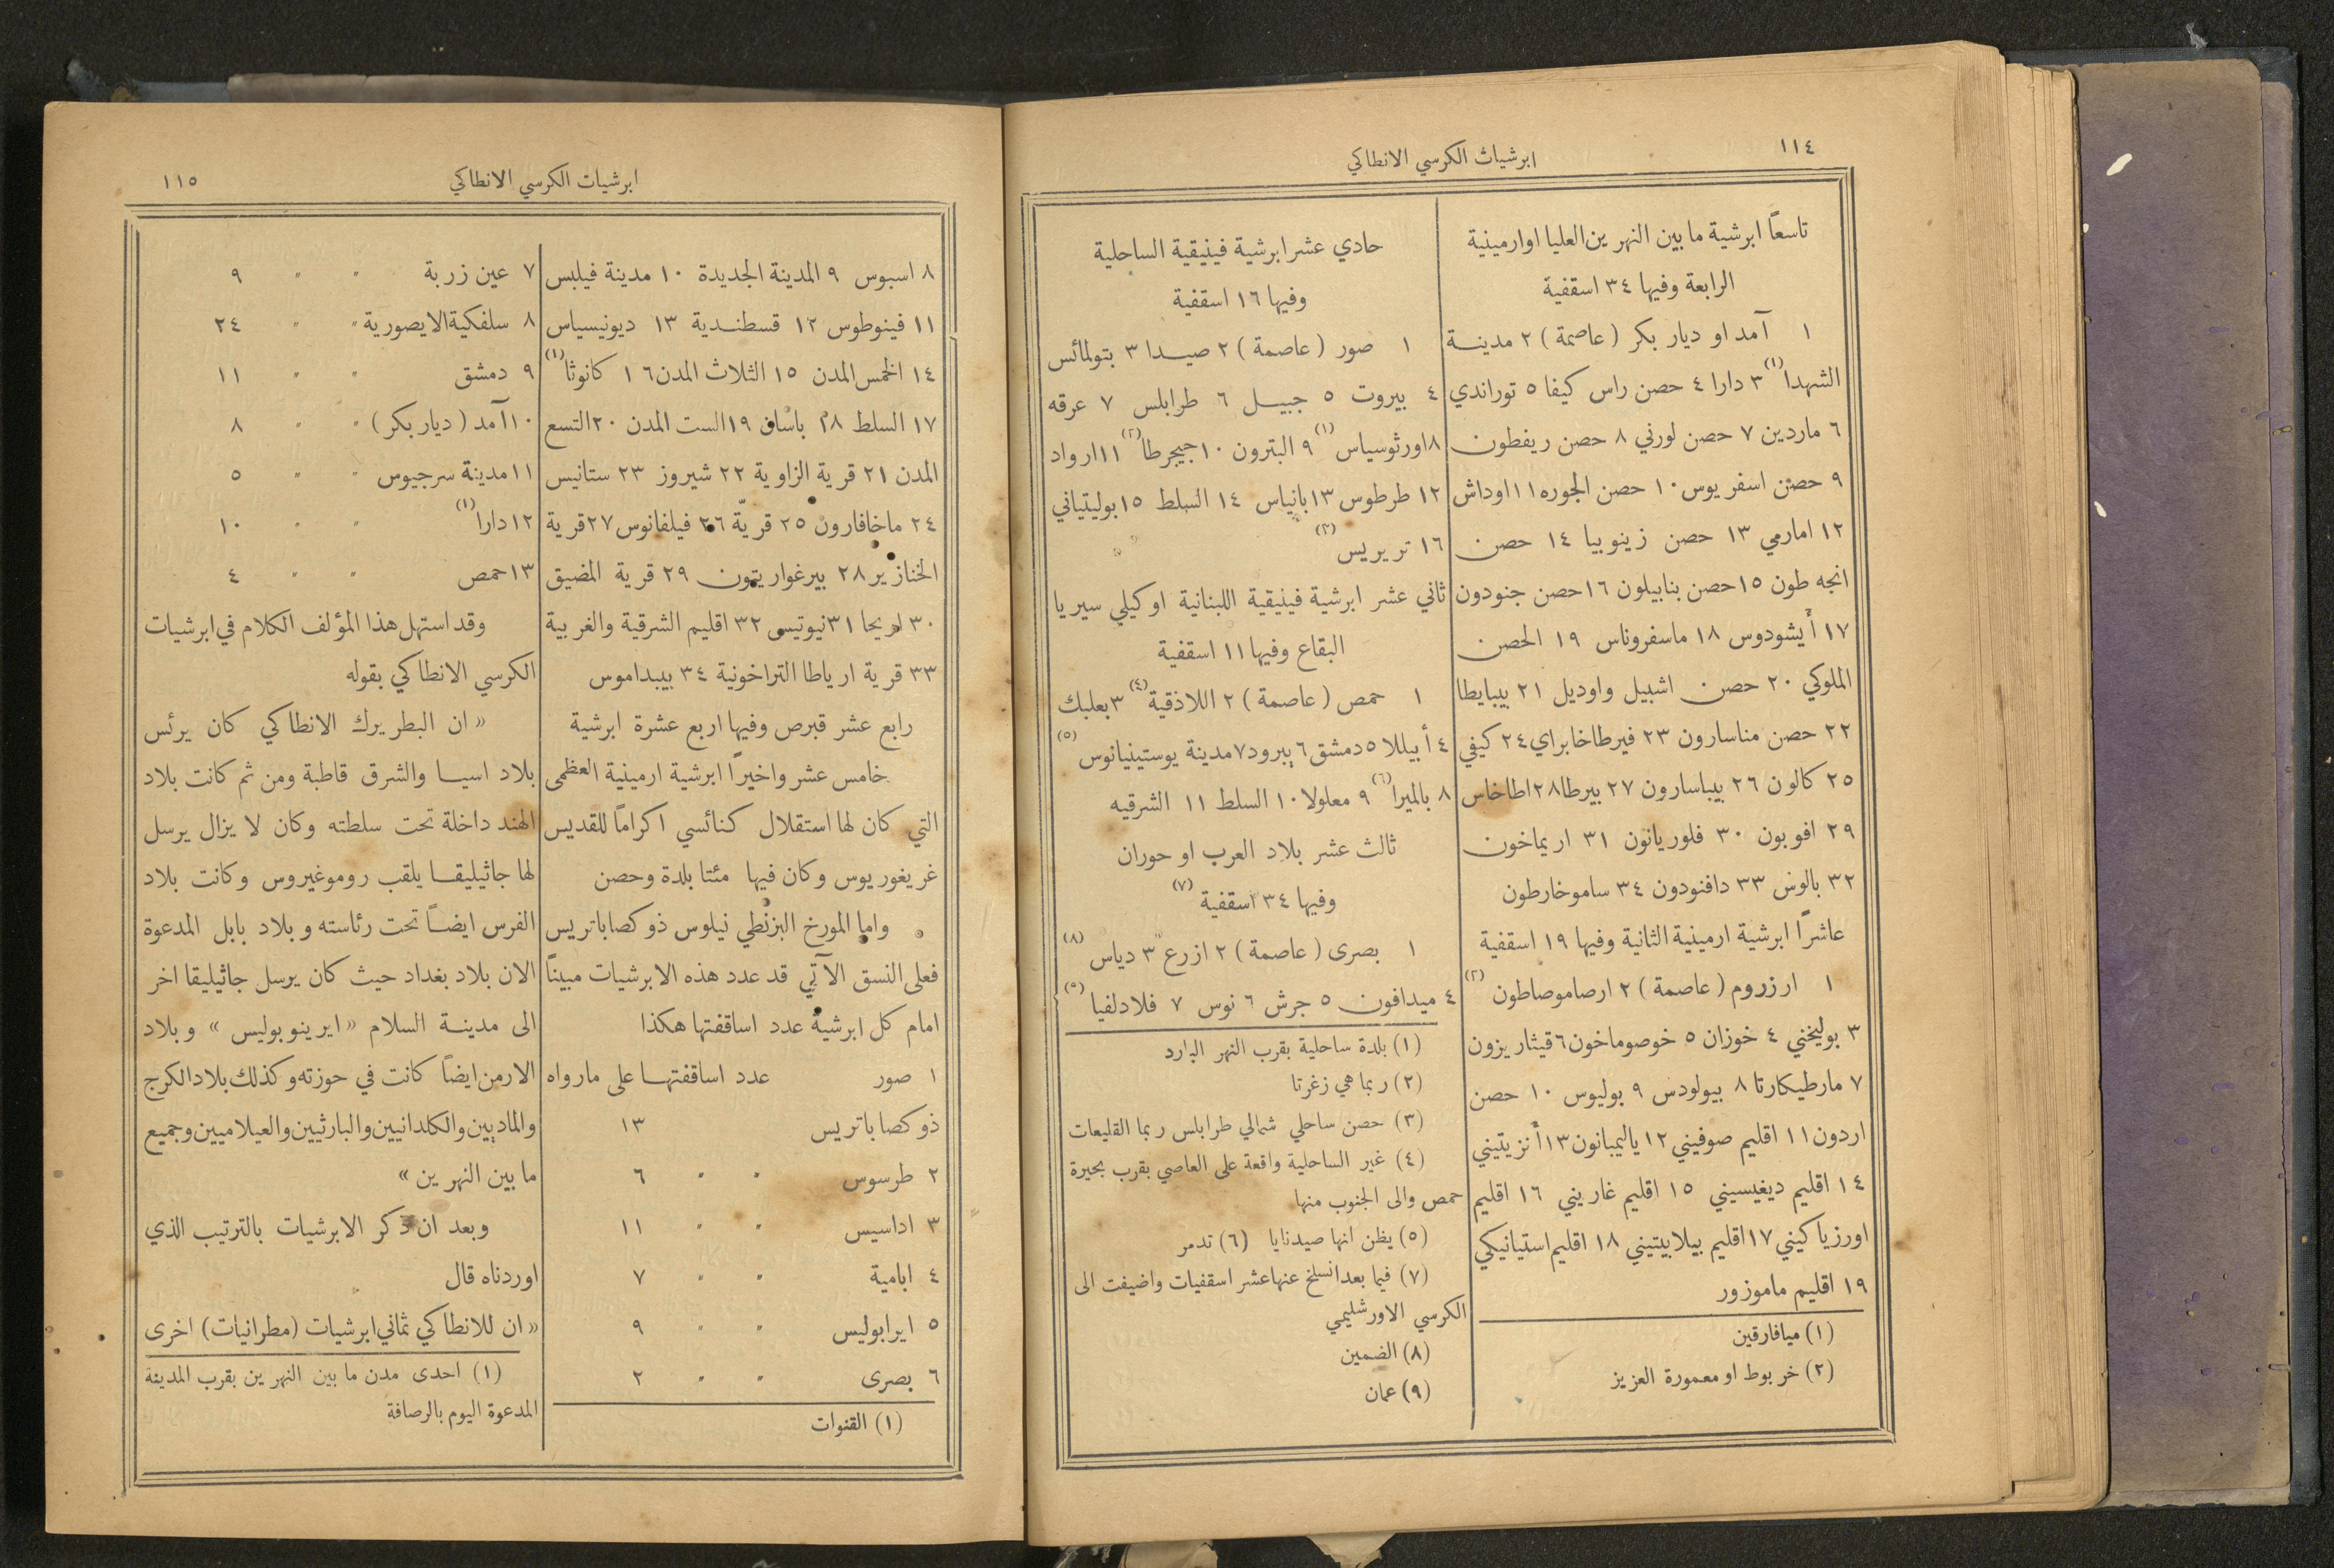 ١١٤
ابرشيات الكرسي الانطاكي
تاسعاً ابرشية ما بين النهرين العليا او ارمينية
الرابعة وفيها ٣٤ اسقفية
١ آمد او ديار بكر (عاصمة) ٢ مدينة
الشهدا (١) ٣ دارا ٤ حصن راس كيفا ٥ توراندي
٦ ماردين ٧ حصن لورني ٨ حصن ريفطون
٩ حصن اسفريوس ١٠ حصن الجوره ١١ اوداش
١٢ امارمي ١٣ حصن زينوبيا ١٤ حصن
انجه طون ١٥ حصن بنابيلون ١٦ حصن جنودون
١٧ أيشودوس ١٨ ماسفروناس ١٩ الحصن
الملوكي ٢٠ حصن اشبيل واوديل ٢١ بيبايطا
٢٢ حصن مناسارون ٢٣ فيرطاخابراي ٢٤ كيفي
٢٥ كالون ٢٦ بيباسارون ٢٧ بيرطا ٢٨ اطاخاس
٢٩ افوبون ٣٠ فلوريانون ٣١ اريماخون
٣٢ بالوس ٣٣ دافنودون ٣٤ ساموخارطون
عاشراً ابرشية ارمينية الثانية وفيها ١٩ اسقفية
١ ارزروم (عاصمة) ٢ ارصاموصاطون (٢)
٣ بوليخني ٤ خوزان ٥ خوصوماخون ٦ قيثاريزون
٧ مارطيكارتا ٨ بيولودس ٩ بوليوس ١٠ حصن
اردون ١١ اقليم صوفيني ١٢ ياليمبانون ١٣ أنزيتيني
١٤ اقليم ديغيسيني ١٥ اقليم غاريني ١٦ اقليم
اورزياكيني ١٧ اقليم بيلابيتيني ١٨ اقليم استيانيكي
١٩ اقليم ماموزور
(١) ميافارقين
(٢) خربوط او معمورة العزيز
حادي عشر ابرشية فينيقية الساحلية
وفيها ١٦ اسقفية
١ صور (عاصمة) ٢ صيدا ٣ بتولمائس
٤ بيروت ٥ جبيل ٦ طرابلس ٧ عرقه
٨ اورثوسياس (١) ٩ البترون ١٠ جيجرطا (٢) ١١ ارواد
١٢ طرطوس ١٣ بانياس ١٤ السلط ١٥ بوليتياني
١٦ تريريس (٣)
ثاني عشر ابرشية فينيقية اللبنانية او كيلي سيريا
البقاع وفيها ١١ اسقفية
١ حمص (عاصمة) ٢ اللاذقية (٤) ٣ بعلبك
٤ أبيللا ٥ دمشق ٦ يبرود ٧ مدينة يوستينيانوس (٥)
٨ بالميرا (٦) ٩ معلولا ١٠ السلط ١١ الشرقيه
ثالث عشر بلاد العرب او حوران
وفيها ٣٤ اسقفية (٧)
١ بصرى (عاصمة) ٢ ازرع ٣ دياس (٨)
٤ ميدافون ٥ جرش ٦ نوس ٧ فلادلفيا (٩)
(١) بلدة ساحلية بقرب النهر البارد
(٢) ربما هي زغرتا
(٣) حصن ساحلي شمالي طرابلس ربما القليعات
(٤) غير الساحلية واقعة على العاصي بقرب بحيرة
حمص والى الجنوب منها
(٥) يظن انها صيدنايا (٦) تدمر
(٧) فيما بعد انسلخ عنها عشر اسقفيات واضيفت الى
الكرسي الاورشليمي
(٨) الضمين
(٩) عمان
ابرشيات الكرسي الانطاكي
١١٥
٨ اسبوس ٩ المدينة الجديدة ١٠ مدينة فيلبس
١١ فينوطوس ١٢ قسطندية ١٣ ديونيسياس
١٤ الخمس المدن ١٥ الثلاث المدن ١٦ كانوثا (١)
١٧ السلط ١٨ باساف ١٩ الست المدن ٢٠ التسع
المدن ٢١ قرية الزاوية ٢٢ شيروز ٢٣ ستانيس
٢٤ ماخافارون ٢٥ قريّة ٢٦ فيلفانوس ٢٧ قرية
الخنازير ٢٨ بيرغواريتون ٢٩ قرية المضيق
٣٠ اريحا ٣١ نيوتيس ٣٢ اقليم الشرقية والغربية
٣٣ قرية ارياطا التراخونية ٣٤ بيبداموس
رابع عشر قبرص وفيها اربع عشرة ابرشية
خامس عشر واخيراً ابرشية ارمينية العظمى
التي كان لها استقلال كنائسي اكراماً للقديس
غريغوريوس وكان فيها مئتا بلدة وحصن
واما المورخ البزنطي نيلوس ذوكصاباتريس
فعلى النسق الآتي قد عدد هذه الابرشيات مبيناً
امام كل ابرشية عدد اساقفتها هكذا
١ صور عدد اساقفتها على ما رواه
ذوكصاباتريس ١٣
٢ طرسوس " " ٦
٣ اداسيس " " ١١
٤ ابامية " " ٧
٥ ايرابوليس " " ٩
٦ بصرى " " ٢
(١) القنوات
٧ عين زربة " " ٩
٨ سلفكية الايصورية " " ٢٤
٩ دمشق " " ١١
١٠ آمد (ديار بكر) " " ٨
١١ مدينة سرجيوس " " ٥
١٢ دارا (١) " " ١٠
١٣ حمص " " ٤
وقد استهل هذا المؤلف الكلام في ابرشيات
الكرسي الانطاكي بقوله
« ان البطريرك الانطاكي كان يرئس
بلاد اسيا والشرق قاطبة ومن ثم كانت بلاد
الهند داخلة تحت سلطته وكان لا يزال يرسل
لها جاثيليقا يلقب روموغيروس وكانت بلاد
الفرس ايضاً تحت رئاسته وبلاد بابل المدعوة
الان بلاد بغداد حيث كان يرسل جاثيليقا اخر
الى مدينة السلام « ايرينوبوليس » وبلاد
الارمن ايضاً كانت في حوزته وكذلك بلاد الكرج
والماديين والكلدانيين والبارثيين والعيلاميين وجميع
ما بين النهرين »
وبعد ان ذكر الابرشيات بالترتيب الذي
اوردناه قال
« ان للانطاكي ثماني ابرشيات (مطرانيات) اخرى
(١) احدى مدن ما بين النهرين بقرب المدينة
المدعوة اليوم بالرصافة